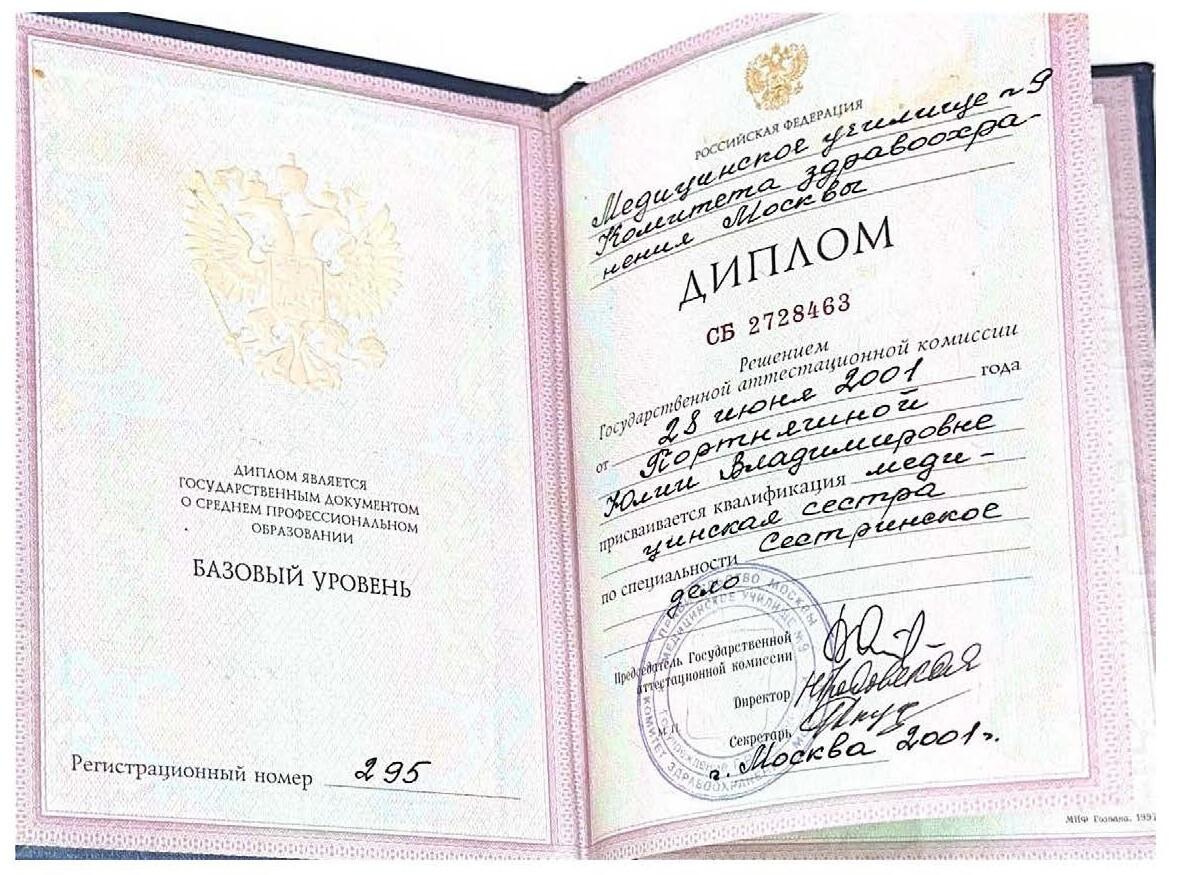 ДИПЛОМ ЯВЛЯЕТСЯ
ГОСУДАРСТВЕННЫМ ДОКУМЕНТОМ
О СРЕДНЕМ ПРОФЕССИОНАЛЬНОМ
ОБРАЗОВАНИИ
БАЗОВЫЙ УРОВЕНЬ
Регистрационный номер 295
РОССИЙСКАЯ ФЕДЕРАЦИЯ
Медицинское училище №9
Комитета здравоохра-
нения Москвы
ДИПЛОМ
СБ 2728463
Решением
Государственной аттестационной комиссии
от 28 июня 2001 года
Портнягиной
Юлии Владимировне
присваивается квалификация меди-
цинская сестра
по специальности Сестринское
дело
Председатель Государственной
аттестационной комиссии
Директор
Секретарь
М.П.
г. Москва 2001 г.
МЕДИЦИНСКОЕ УЧИЛИЩЕ №9
КОМИТЕТ ЗДРАВООХРАНЕНИЯ
МПФ Гознака. 1997